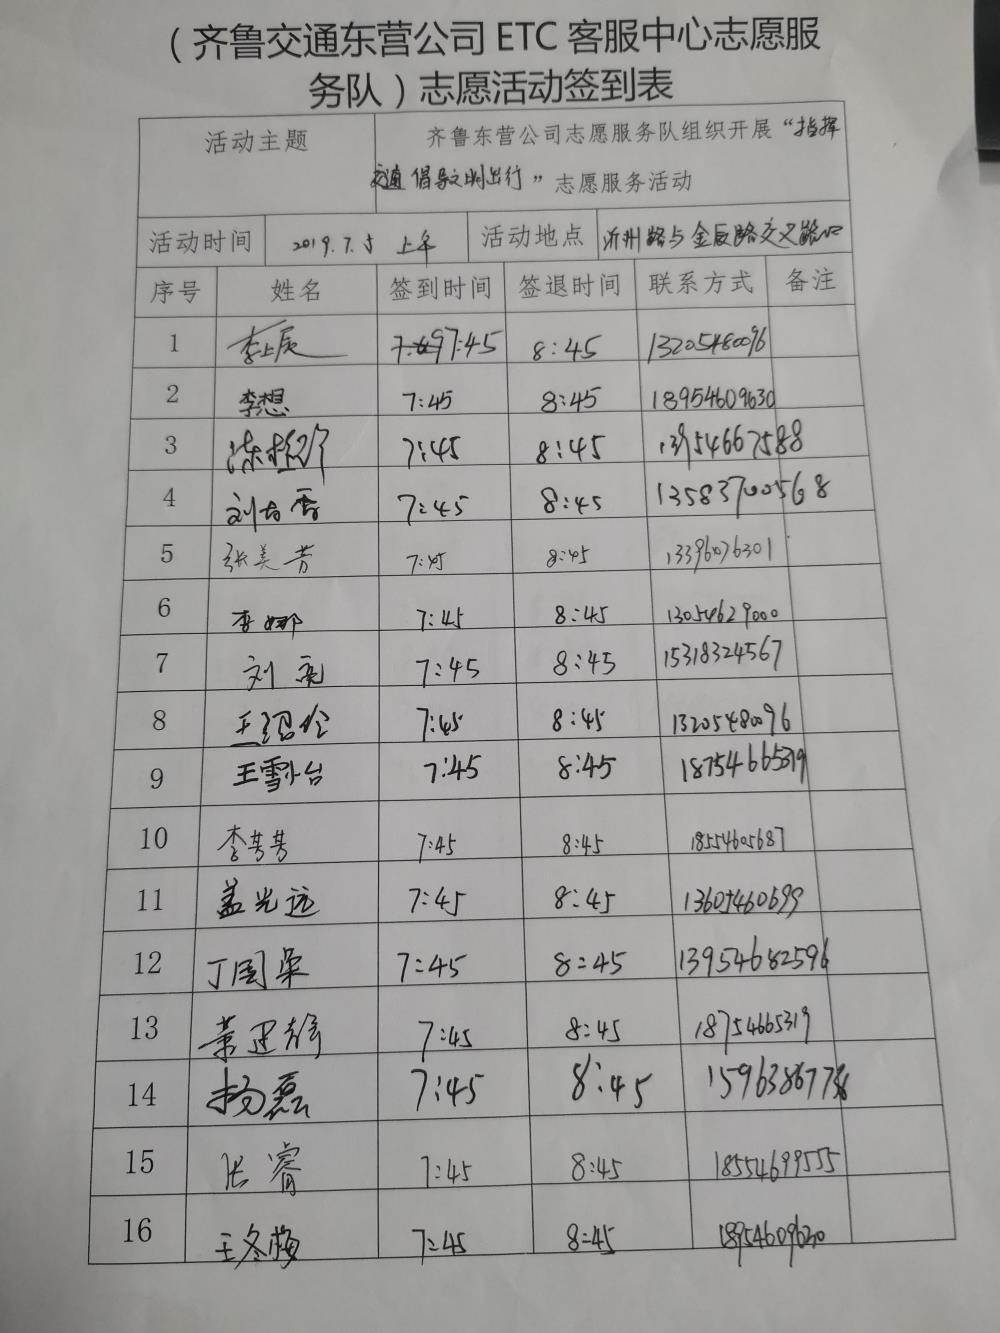 （齐鲁交通东营公司 ETC 客服中心志愿服
务队）志愿活动签到表
活动主题 齐鲁东营公司志愿服务队组织开展“指挥
交通 倡导文明出行”志愿服务活动
活动时间 2019.7.5 上午 活动地点 沂州路与金辰路交叉路口
序号 姓名 签到时间 签退时间 联系方式 备注
1 李上辰 7:45 8:45 13205480096
2 李想 7:45 8:45 18954609630
3 7:45 8:45 13954667588
4 7:45 8:45 13583700568
5 张美芳 7:45 8:45 13396076301
6 李娜 7:45 8:45 13054629000
7 刘亮 7:45 8:45 15318324567
8 王绍伦 7:45 8:45 13205480096
9 王雪 7:45 8:45 18754665319
10 李芳芳 7:45 8:45 18554605687
11 盖光远 7:45 8:45 13605460699
12 丁国栗 7:45 8:45 13954682596
13 7:45 8:45 18754665319
14 杨磊 7:45 8:45 1596386778
15 张睿 7:45 8:45 18554699555
16 王冬梅 7:45 8:45 18954609630